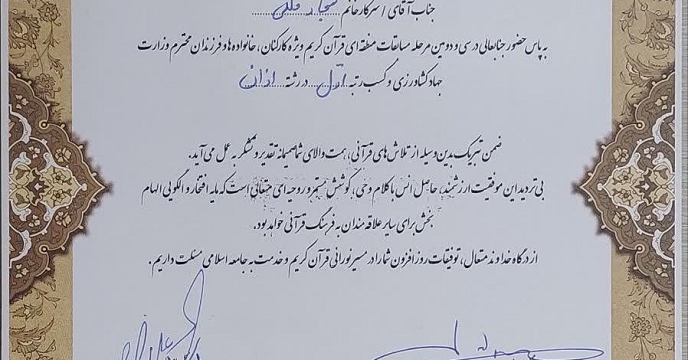 جناب آقای / سرکار خانم سجاد
به پاس حضور جنابعالی در سی و دومین مرحله مسابقات منطقه‌ای قرآن کریم ویژه کارکنان، خانواده‌ها و فرزندان محترم وزارت
جهاد کشاورزی و کسب رتبه اول در رشته اذان
ضمن تبریک بدین وسیله از تلاش‌های قرآنی، همت والای شما صمیمانه تقدیر و تشکر به عمل می‌آید.
بی تردید این موفقیت ارزشمند، حاصل انس با کلام وحی، کوشش مستمر و روحیه‌ای حقیقتاً است که مایه افتخار و الگویی الهام
بخش برای سایر علاقه مندان به فرهنگ قرآنی خواهد بود.
از درگاه خداوند متعال، توفیقات روز افزون شما را در مسیر نورانی قرآن کریم و خدمت به جامعه اسلامی مسئلت داریم.